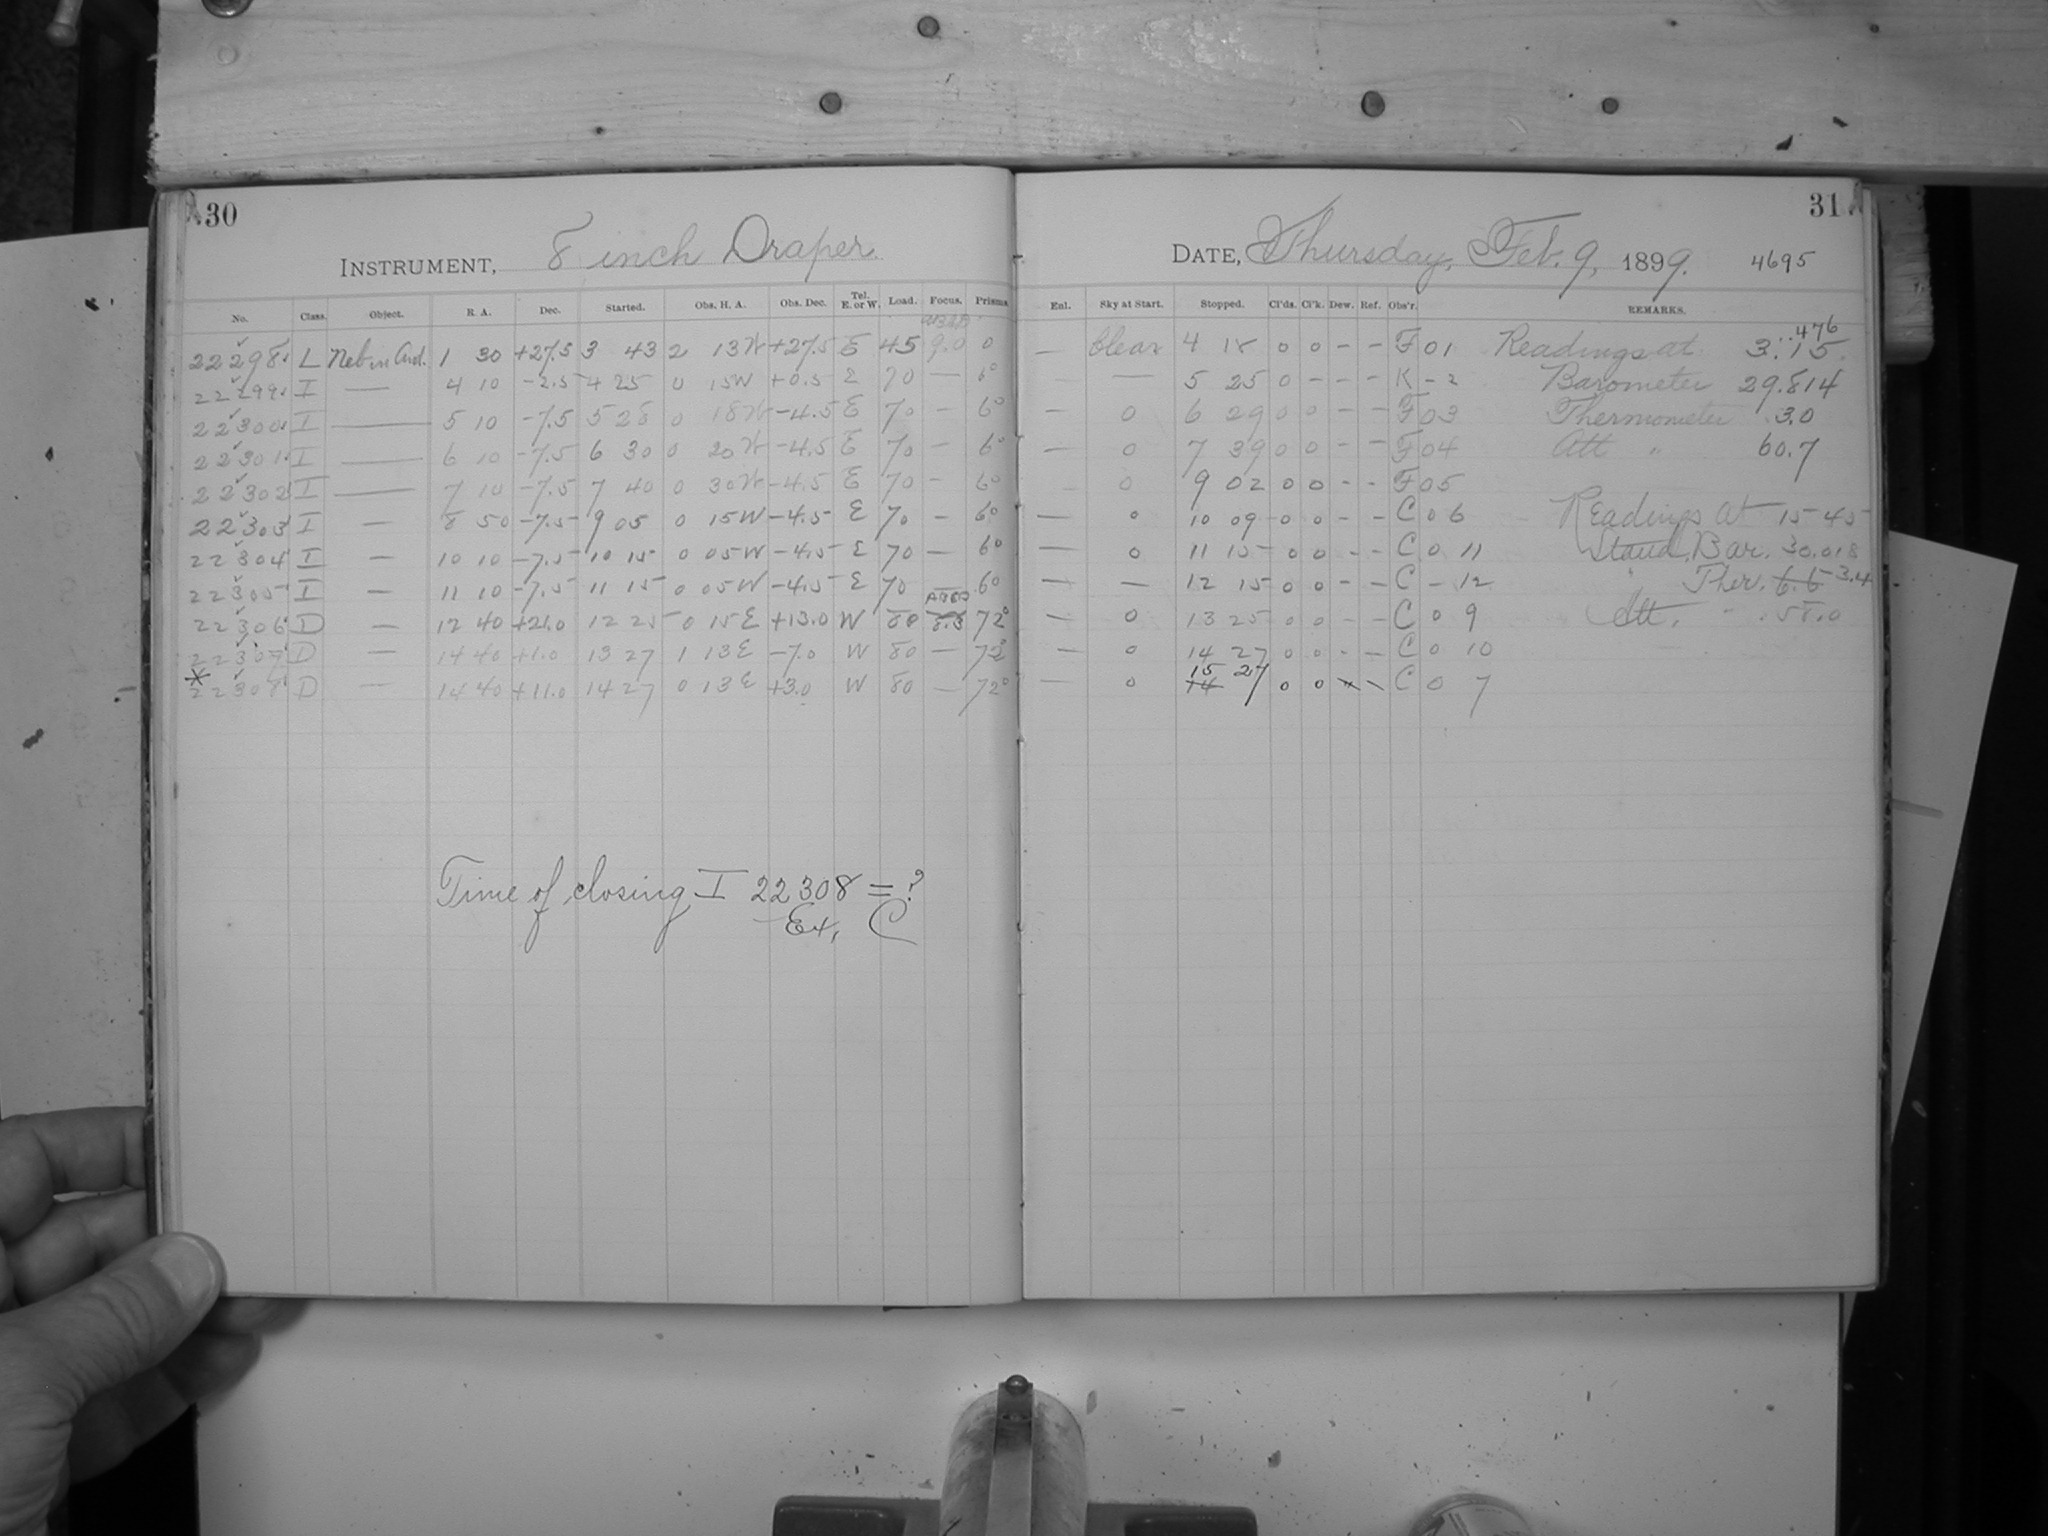 30
INSTRUMENT, 8 inch Draper
No. Class. Object. R. A. Dec. Started. Obs. H. A. Obs. Dec. Tel. E. or W. Load. Focus. Prisms
22298 L Neb in And. 1 30 +27.5 3 43 2 13W +27.5 E 45 9.0 0
22299 I — 4 10 -2.5 4 25 0 15W +0.5 E 70 — 6°
22300 I — 5 10 -7.5 5 28 0 18W -4.5 E 70 — 6°
22301 I — 6 10 -7.5 6 30 0 20W -4.5 E 70 — 6°
22302 I — 7 10 -7.5 7 40 0 30W -4.5 E 70 — 6°
22303 I — 8 50 -7.5 9 05 0 15W -4.5 E 70 — 6°
22304 I — 10 10 -7.5 10 15 0 05W -4.5 E 70 — 6°
22305 I — 11 10 -7.5 11 15 0 05W -4.5 E 70 6°
22306 D — 12 40 +21.0 12 25 0 15E +13.0 W 80 8.3 72°
22307 D — 14 40 +1.0 13 27 1 13E -7.0 W 80 — 72°
* 22308 D — 14 40 +11.0 14 27 0 13E +3.0 W 80 — 72°
Time of closing I 22308 = ?
Ex, C
31
DATE, Thursday, Feb. 9, 1899. 4695
Enl. Sky at Start. Stopped. Cl'ds. Cl'k. Dew. Ref. Obs'r. REMARKS.
.476
— Clear 4 18 0 0 - - F 01 Readings at 3.15
— — 5 25 0 - - - K - 2 Barometer 29.814
— 0 6 29 0 0 - - F 03 Thermometer 3.0
— 0 7 39 0 0 - - F 04 Att " 60.7
0 9 02 0 0 - - F 05
— 0 10 09 0 0 - - C 0 6 Readings at 15-45
— 0 11 15 0 0 - - C 0 11 Stand. Bar. 30.018
— — 12 15 0 0 - - C - 12 " Ther. 6.6 3.4
— 0 13 25 0 0 - - C 0 9 Att. " 58.0
— 0 14 27 0 0 - - C 0 10
15 27
— 0 14 0 0 C 0 7